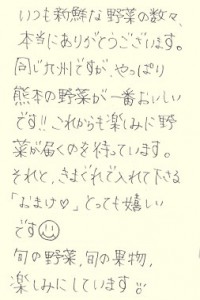 いつも新鮮な野菜の数々、
本当にありがとうございます。
同じ九州ですが、やっぱり
熊本の野菜が一番おいしい
です!! これからも楽しみに野
菜が届くのを待っています。
それと、きまぐれで入れて下さる
「おまけ♡」とっても嬉しい
です☺
旬の野菜、旬の果物、
楽しみにしています。